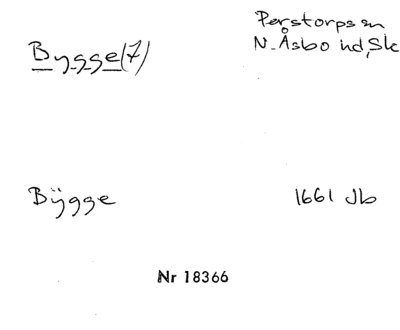 Perstorps sn
Bygge(7) N. Åsbo hd, Sk
Bÿgge 1661 Jb
Nr 18366